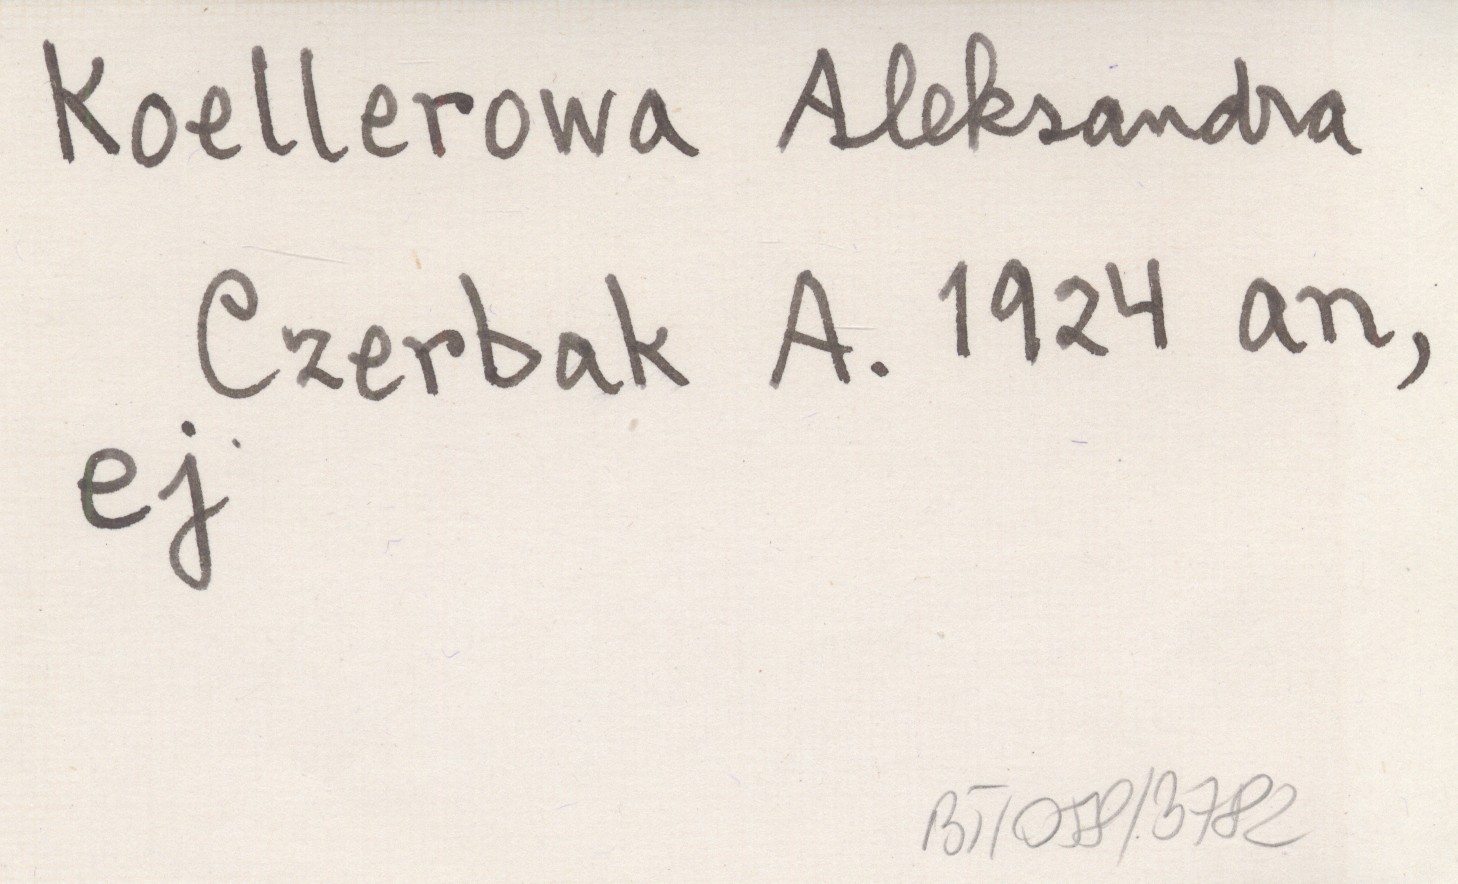 Koellerowa Aleksandra
Czerbak A. 1924 an,
ej
BT/058/3782